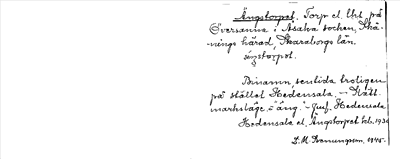 Ängstorpet. Torp el. lht. på
Sversanna i Asaka socken, Kå-
kinds härad, Skaraborgs län.
äŋstorpət.
Binamn, sentida troligen
på stället Hedensala. - Natt.
marksläge. - "äng". - Jmf. Hedensala
Hedensala el. Ängstorpet kb. 1930
L.M. Svenungsson, 1945.